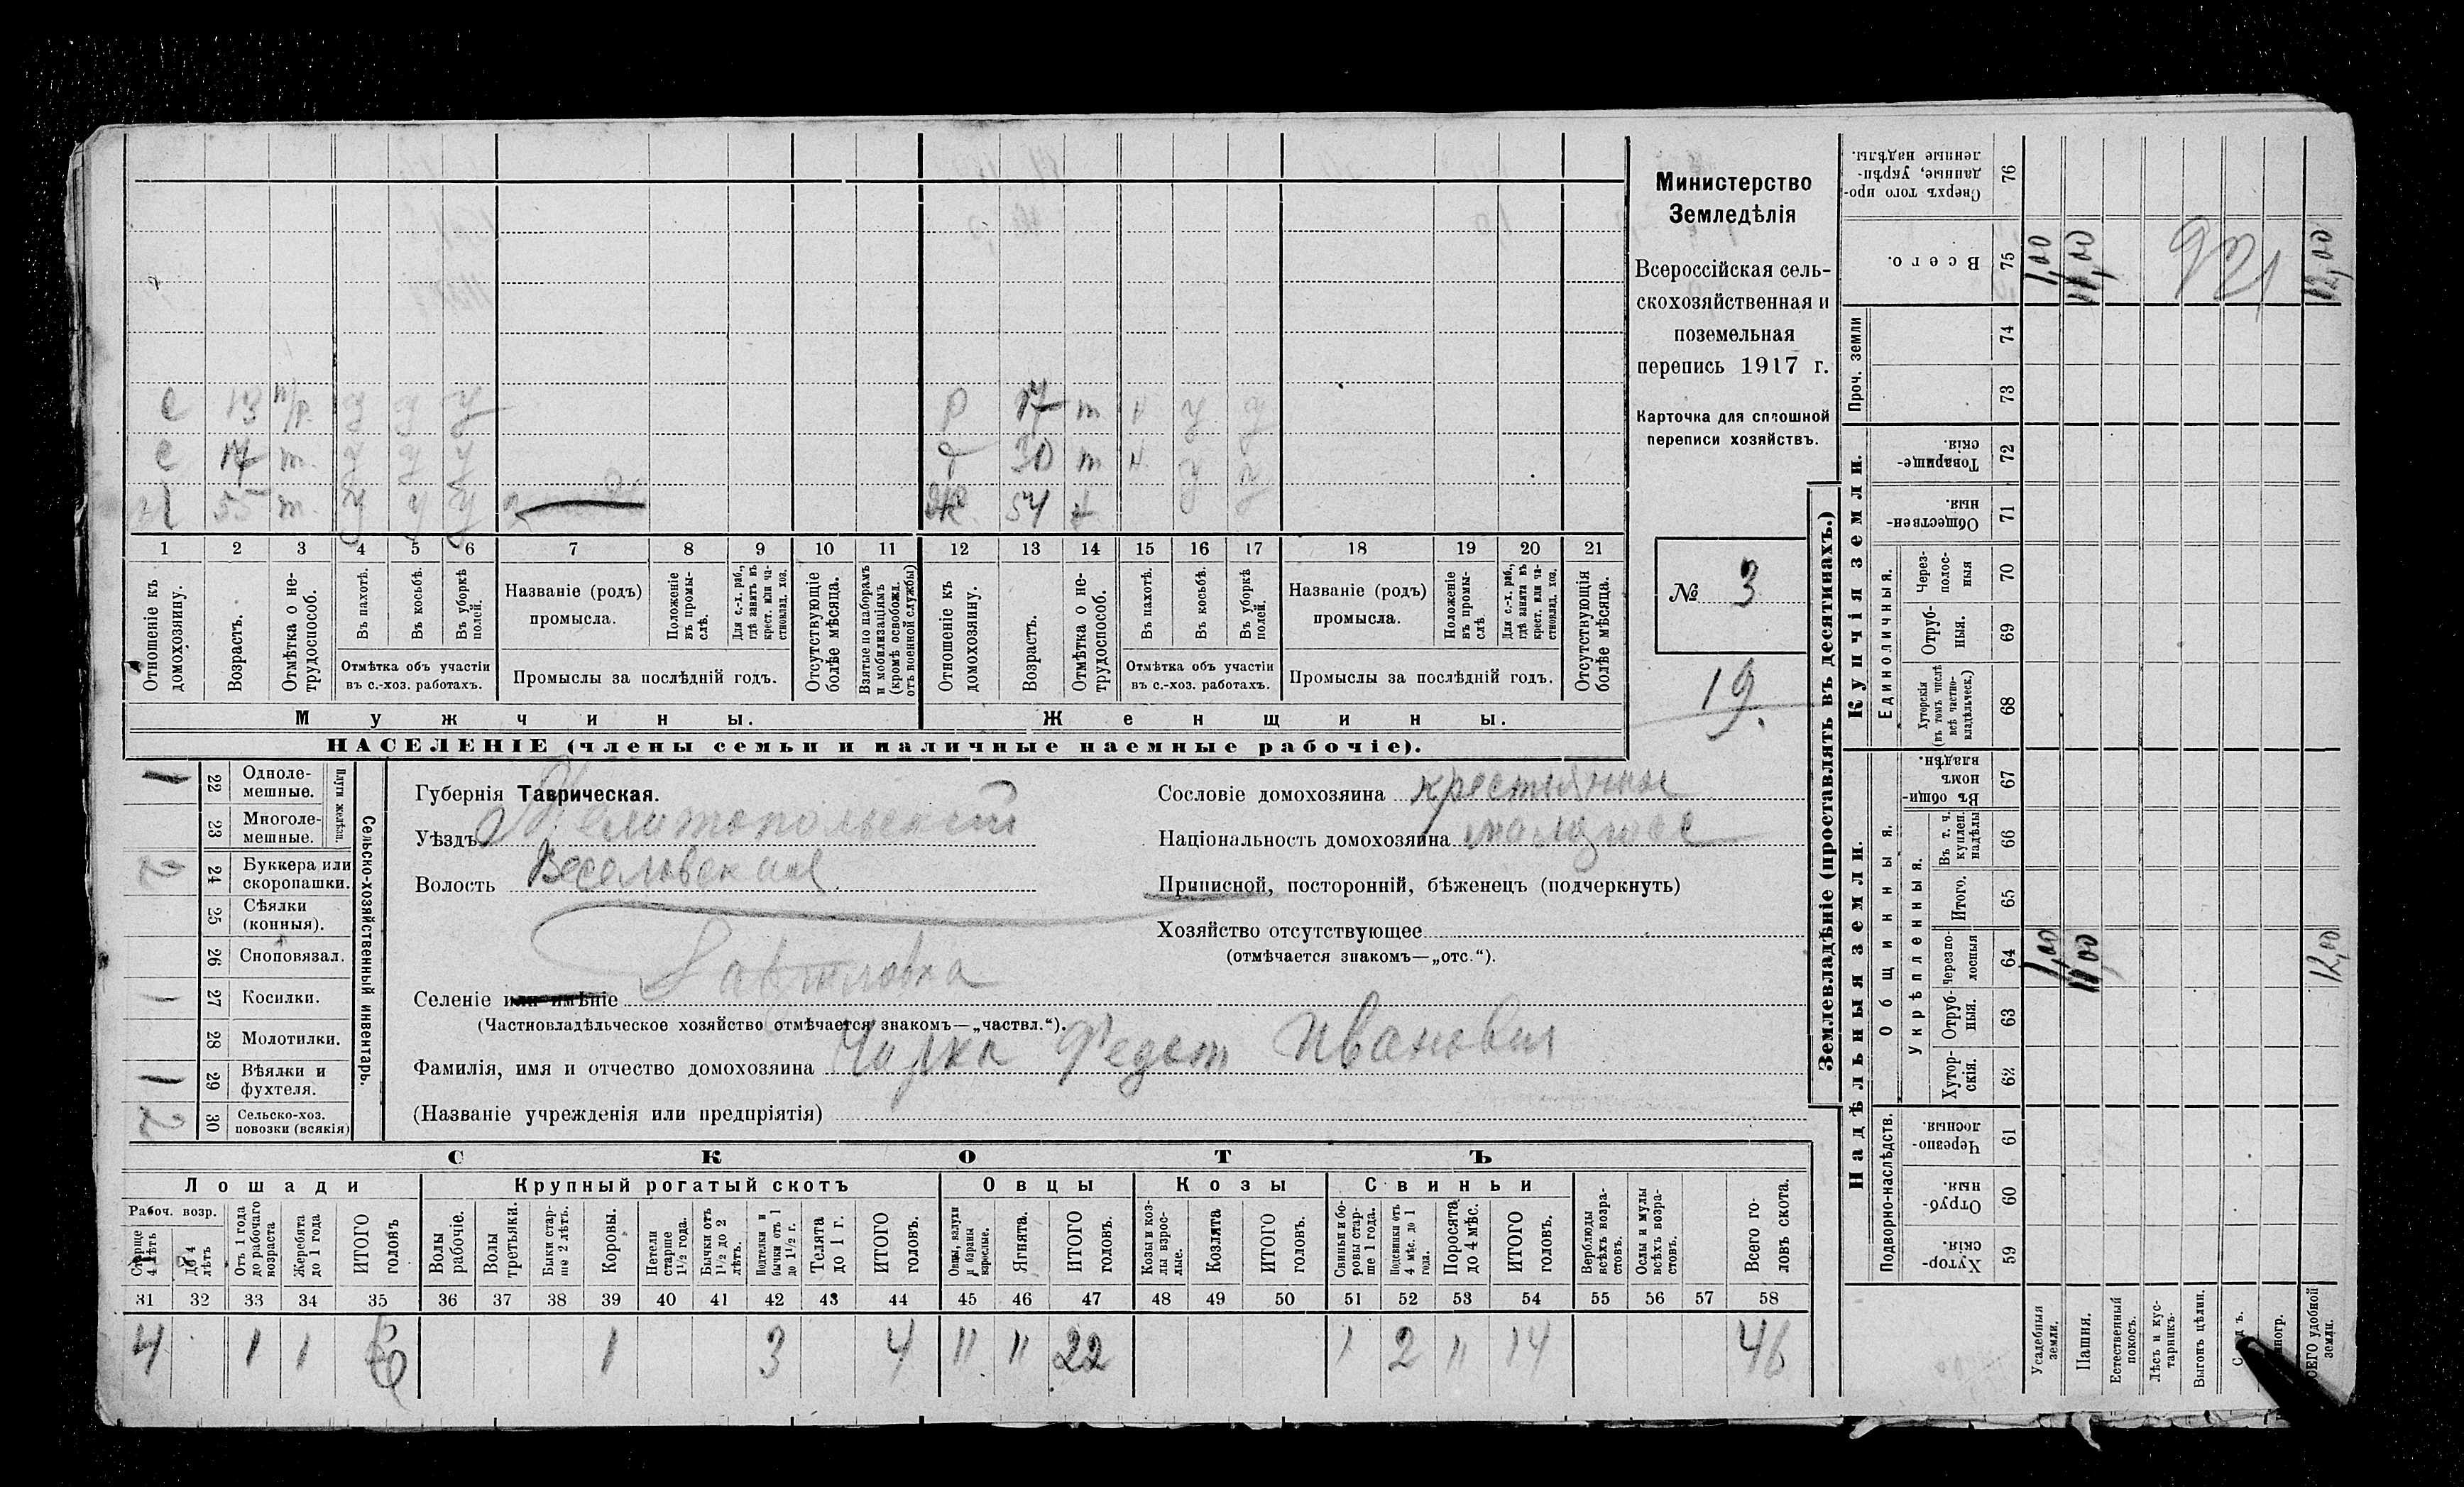 Министерство
Земледѣлія
Всероссійская сель-
скохозяйственная и
поземельная
перепись 1917 г.
Карточка для сплошной
переписи хозяйствъ.
№ 3
19.
с 13 н/р. у у у
р 17 т н у у
с 17 т. у у у
30 т н у у
55 т. у у у
ж. 54 т у у
1 2 3 4 5 6 7 8 9 10 11 12 13 14 15 16 17 18 19 20 21
Отношеніе къ домохозяину.
Возрастъ.
Отмѣтка о не-трудоспособ.
Въ пахотѣ.
Въ косьбѣ.
Въ уборкѣ полей.
Отмѣтка объ участіи
въ с.-хоз. работахъ.
Названіе (родъ)
промысла.
Положеніе въ промы-слѣ.
Для с.-х. раб., гдѣ занятъ въ крест. или ча-стновлад. хоз.
Промыслы за послѣдній годъ.
Отсутствующіе болѣе мѣсяца.
Взятые по наборамъ и мобилизаціямъ (кромѣ освобожд. отъ военной службы)
Отношеніе къ домохозяину.
Возрастъ.
Отмѣтка о не-трудоспособ.
Въ пахотѣ.
Въ косьбѣ.
Въ уборкѣ полей.
Отмѣтка объ участіи
въ с.-хоз. работахъ.
Названіе (родъ)
промысла.
Положеніе въ промы-слѣ.
Для с.-х. раб., гдѣ занята въ крест. или ча-стновлад. хоз.
Промыслы за послѣдній годъ.
Отсутствующія болѣе мѣсяца.
Мужчины.
Женщины.
НАСЕЛЕНІЕ (члены семьи и наличные наемные рабочіе).
Сельско-хозяйственный инвентарь.
Плуги желѣзн.
1 22 Одноле-мешные.
23 Многоле-мешные.
2 24 Буккера или скоропашки.
25 Сѣялки (конныя).
26 Сноповязал.
1 27 Косилки.
28 Молотилки.
1 29 Вѣялки и фухтеля.
2 30 Сельско-хоз. повозки (всякія)
Губернія Таврическая.
Уѣздъ Мелитопольскій
Волость Веселовская
Сословіе домохозяина крестьянин
Національность домохозяина малоросс
Приписной, посторонній, бѣженецъ (подчеркнуть)
Хозяйство отсутствующее
(отмѣчается знакомъ—„отс.“).
Селеніе или имѣніе
(Частновладѣльческое хозяйство отмѣчается знакомъ—„частвл.“).
Фамилія, имя и отчество домохозяина Федот Иванович
(Названіе учрежденія или предпріятія)
СКОТЪ
Лошади
Крупный рогатый скотъ
Овцы
Козы
Свиньи
Рабоч. возр.
Старше 4 лѣтъ
До 4 лѣтъ
Отъ 1 года до рабочаго возраста
Жеребята до 1 года
ИТОГО головъ
Волы рабочіе.
Волы третьяки.
Быки стар-ше 2 лѣтъ.
Коровы.
Нетели старше 1½ года.
Бычки отъ 1½ до 2 лѣтъ.
Подтелки и бычки отъ 1 до 1½ г.
Телята до 1 г.
ИТОГО головъ.
Овцы, валухи и бараны взрослые.
Ягнята.
ИТОГО головъ.
Козы и коз-лы взрос-лые.
Козлята
ИТОГО головъ.
Свиньи и бо-ровы стар-ше 1 года.
Подсвинки отъ 4 мѣс. до 1 года.
Поросята до 4 мѣс.
ИТОГО головъ.
Верблюды всѣхъ возра-стовъ.
Ослы и мулы всѣхъ возра-стовъ.
Всего го-ловъ скота.
31 32 33 34 35 36 37 38 39 40 41 42 43 44 45 46 47 48 49 50 51 52 53 54 55 56 57 58
4 1 1 6 1 3 4 " " 22 1 2 " 14 46
Землевладѣніе (проставлять въ десятинахъ.)
Купчія земли.
Надѣльныя земли.
Сверхъ того про-данные, укрѣп-ленные надѣлы. 76
Всего. 75 1,00 11,00 12,00
Проч. земли 74
73
Товарище-скія. 72
Обществен-ныя. 71
Единоличныя.
Через-полос-ныя 70
Отруб-ныя. 69
Хуторскія (въ томъ числѣ всѣ частно-владѣльческ.) 68
Общинныя.
Въ общи-номъ владѣн. 67
Укрѣпленныя.
Въ т. ч. куплен. надѣлы 66
Итого. 65
Черезпо-лосныя 64 1,00 11,00 12,00
Отруб-ныя. 63
Хутор-скія. 62
Подворно-наслѣдств.
Черезпо-лосныя. 61
Отруб-ныя. 60
Хутор-скія. 59
Усадебныя земли.
Пашня.
Естественный покосъ.
Лѣсъ и кус-тарникъ.
Выгонъ цѣлин.
удобной земли.